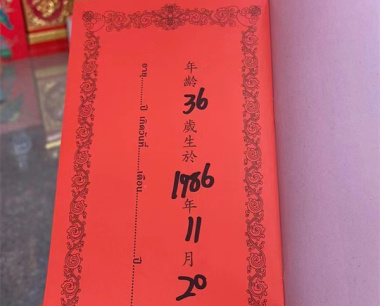 年齡 36 歲生於 1986 年 11 月 20
อายุ..........ปี เกิดวันที่..........เดือน....................ปี